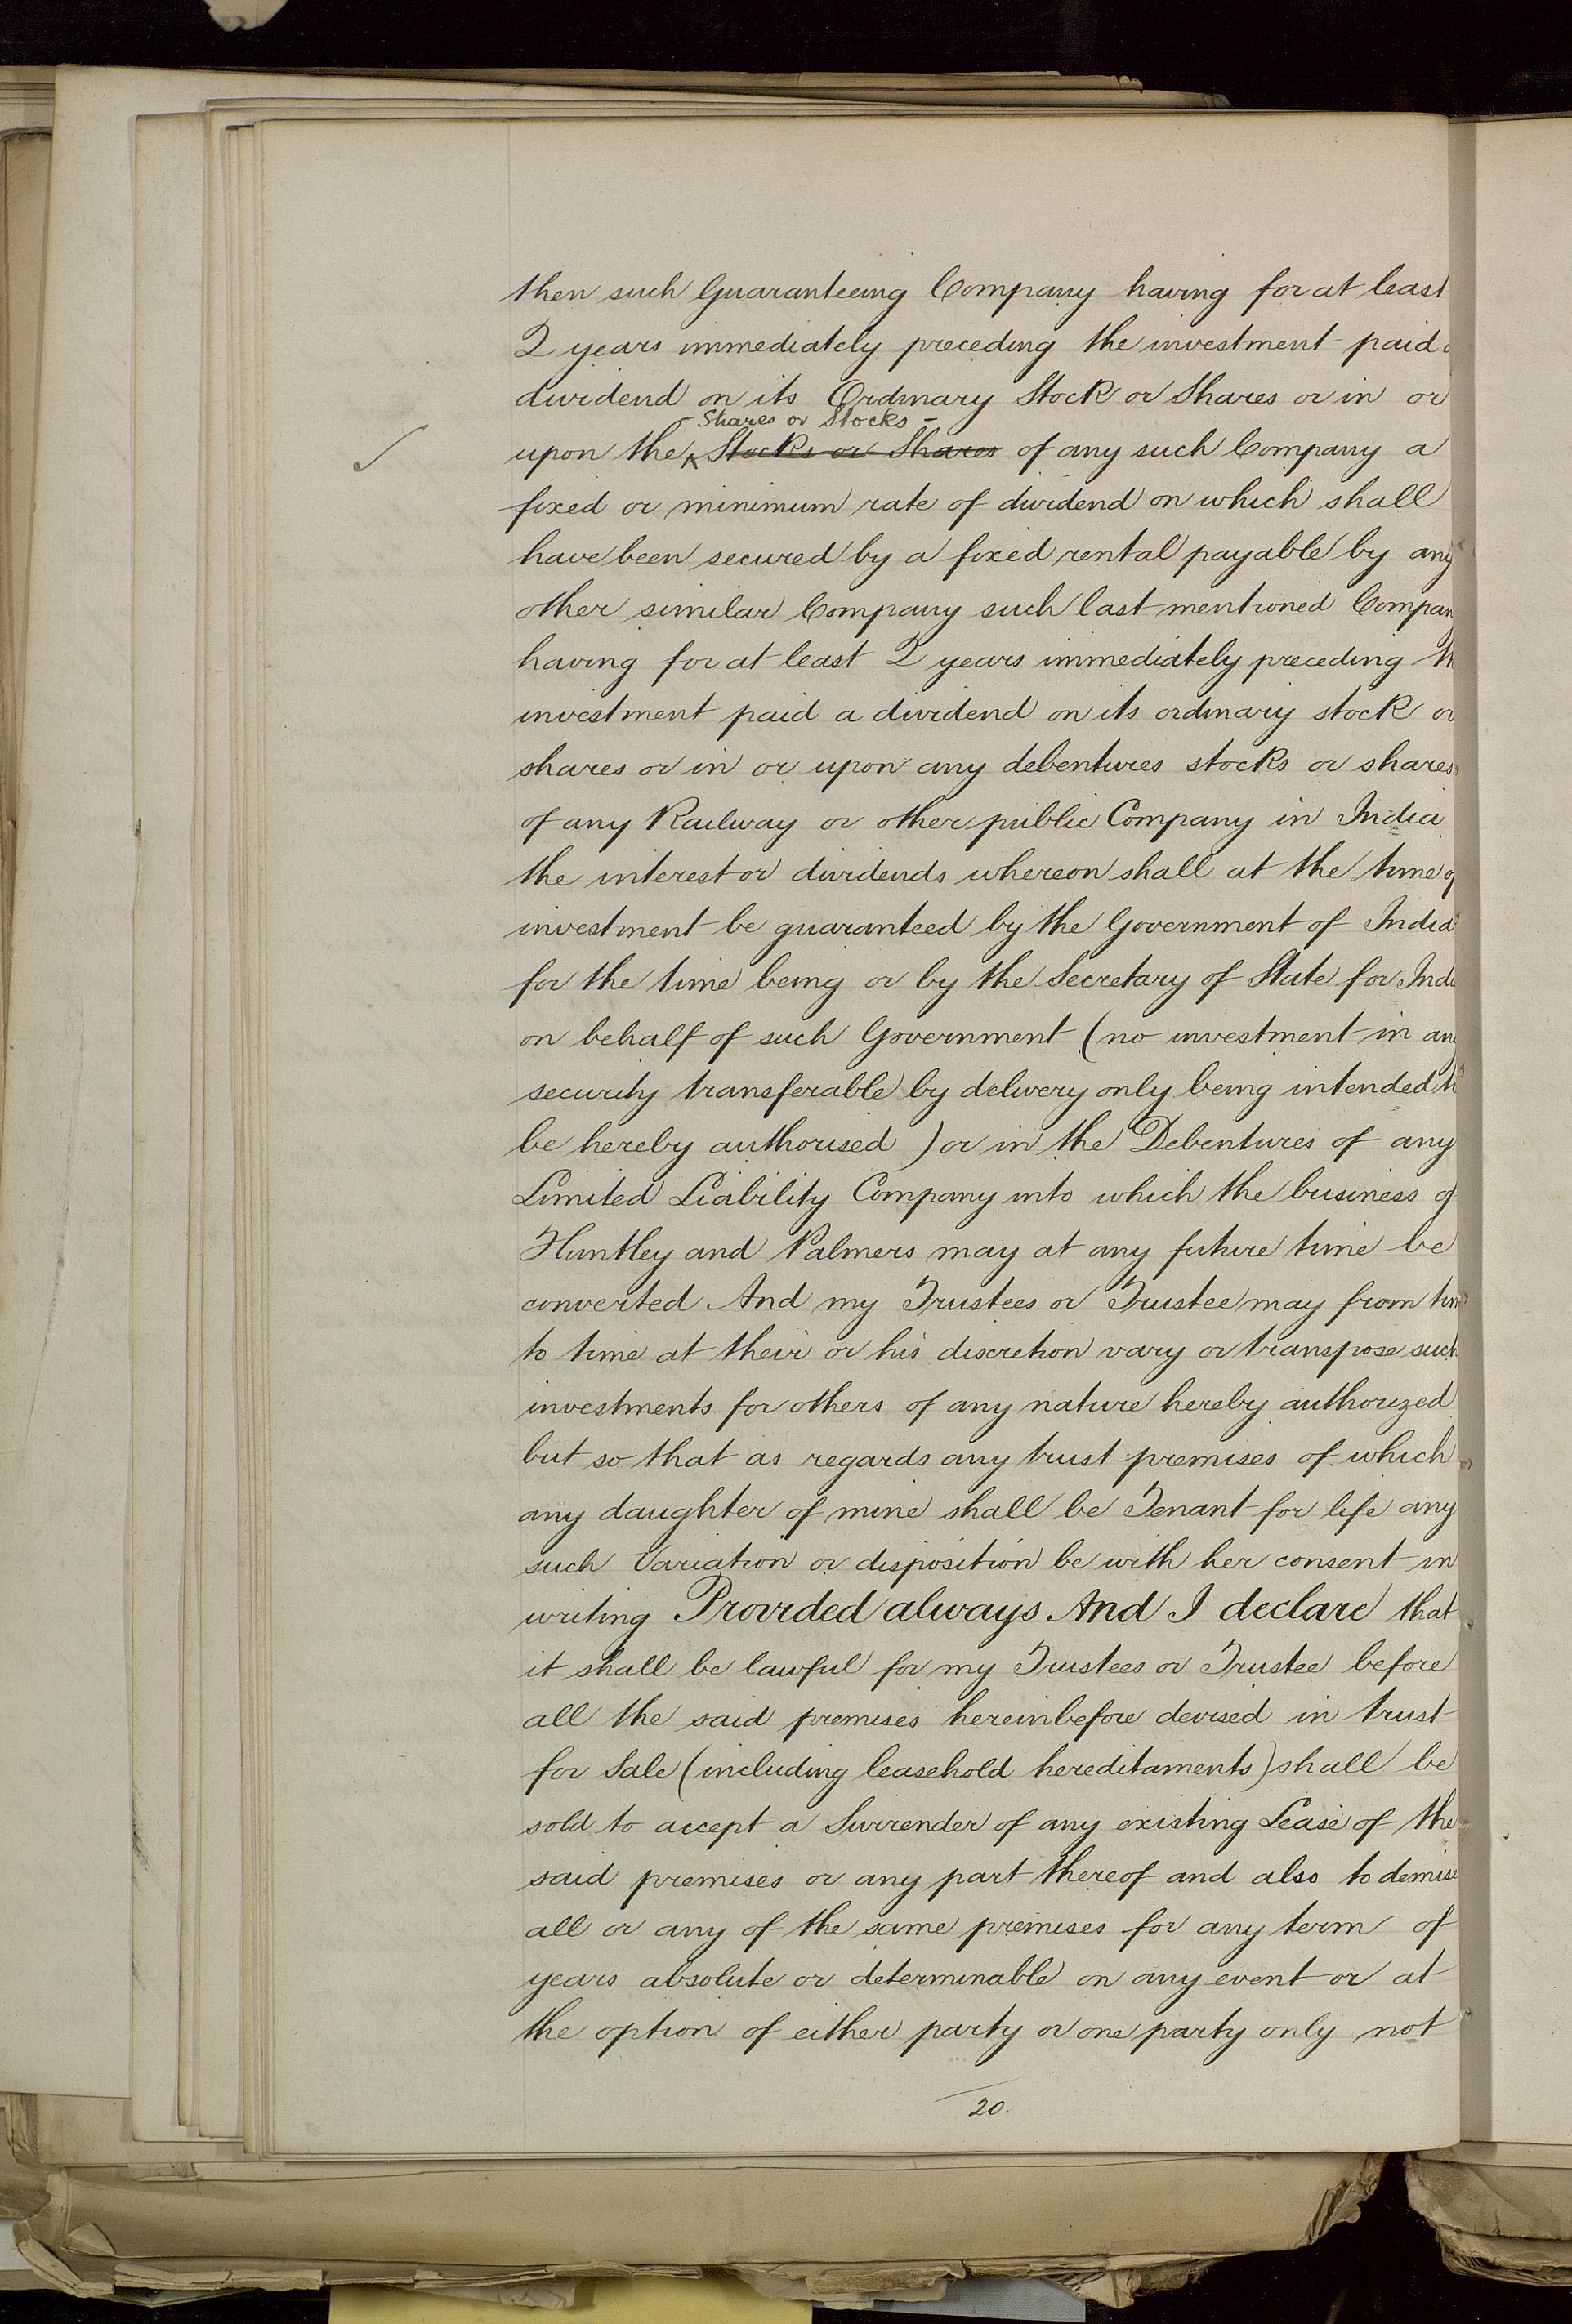 then such Guaranteeing Company having for at least
2 years immediately preceding the investment paid
dividend on its Ordinary Stock or Shares or in or
Shares or Stocks
upon the Stocks or Shares of any such Company a
fixed or minimum rate of dividend on which shall
have been secured by a fixed rental payable by any
other similar Company such last mentioned Compan
having for at least 2 years immediately preceding th
investment paid a dividend on its ordinary stock or
shares or in or upon any debentures stocks or shares
of any Railway or other public Company in India
the interest or dividends whereon shall at the time of
investment be guaranteed by the Government of India
for the time being or by the Secretary of State for Indi
on behalf of such Government (no investment in any
security transferable by delivery only being intended to
be hereby authorised) or in the Debentures of any
Limited Liability Company into which the business of
Huntley and Palmers may at any future time be
converted And my Trustees or Trustee may from time
to time at their or his discretion vary or transpose such
investments for others of any nature hereby authorized
but so that as regards any trust premises of which
any daughter of mine shall be Tenant for life any
such Variation or disposition be with her consent in
writing Provided always And I declare that
it shall be lawful for my Trustees or Trustee before
all the said premises hereinbefore devised in trust
for Sale (including leasehold hereditaments) shall be
sold to accept a Surrender of any existing Lease of the
said premises or any part thereof and also to demise
all or any of the same premises for any term of
years absolute or determinable on any event or at
the option of either party or one party only not
20.